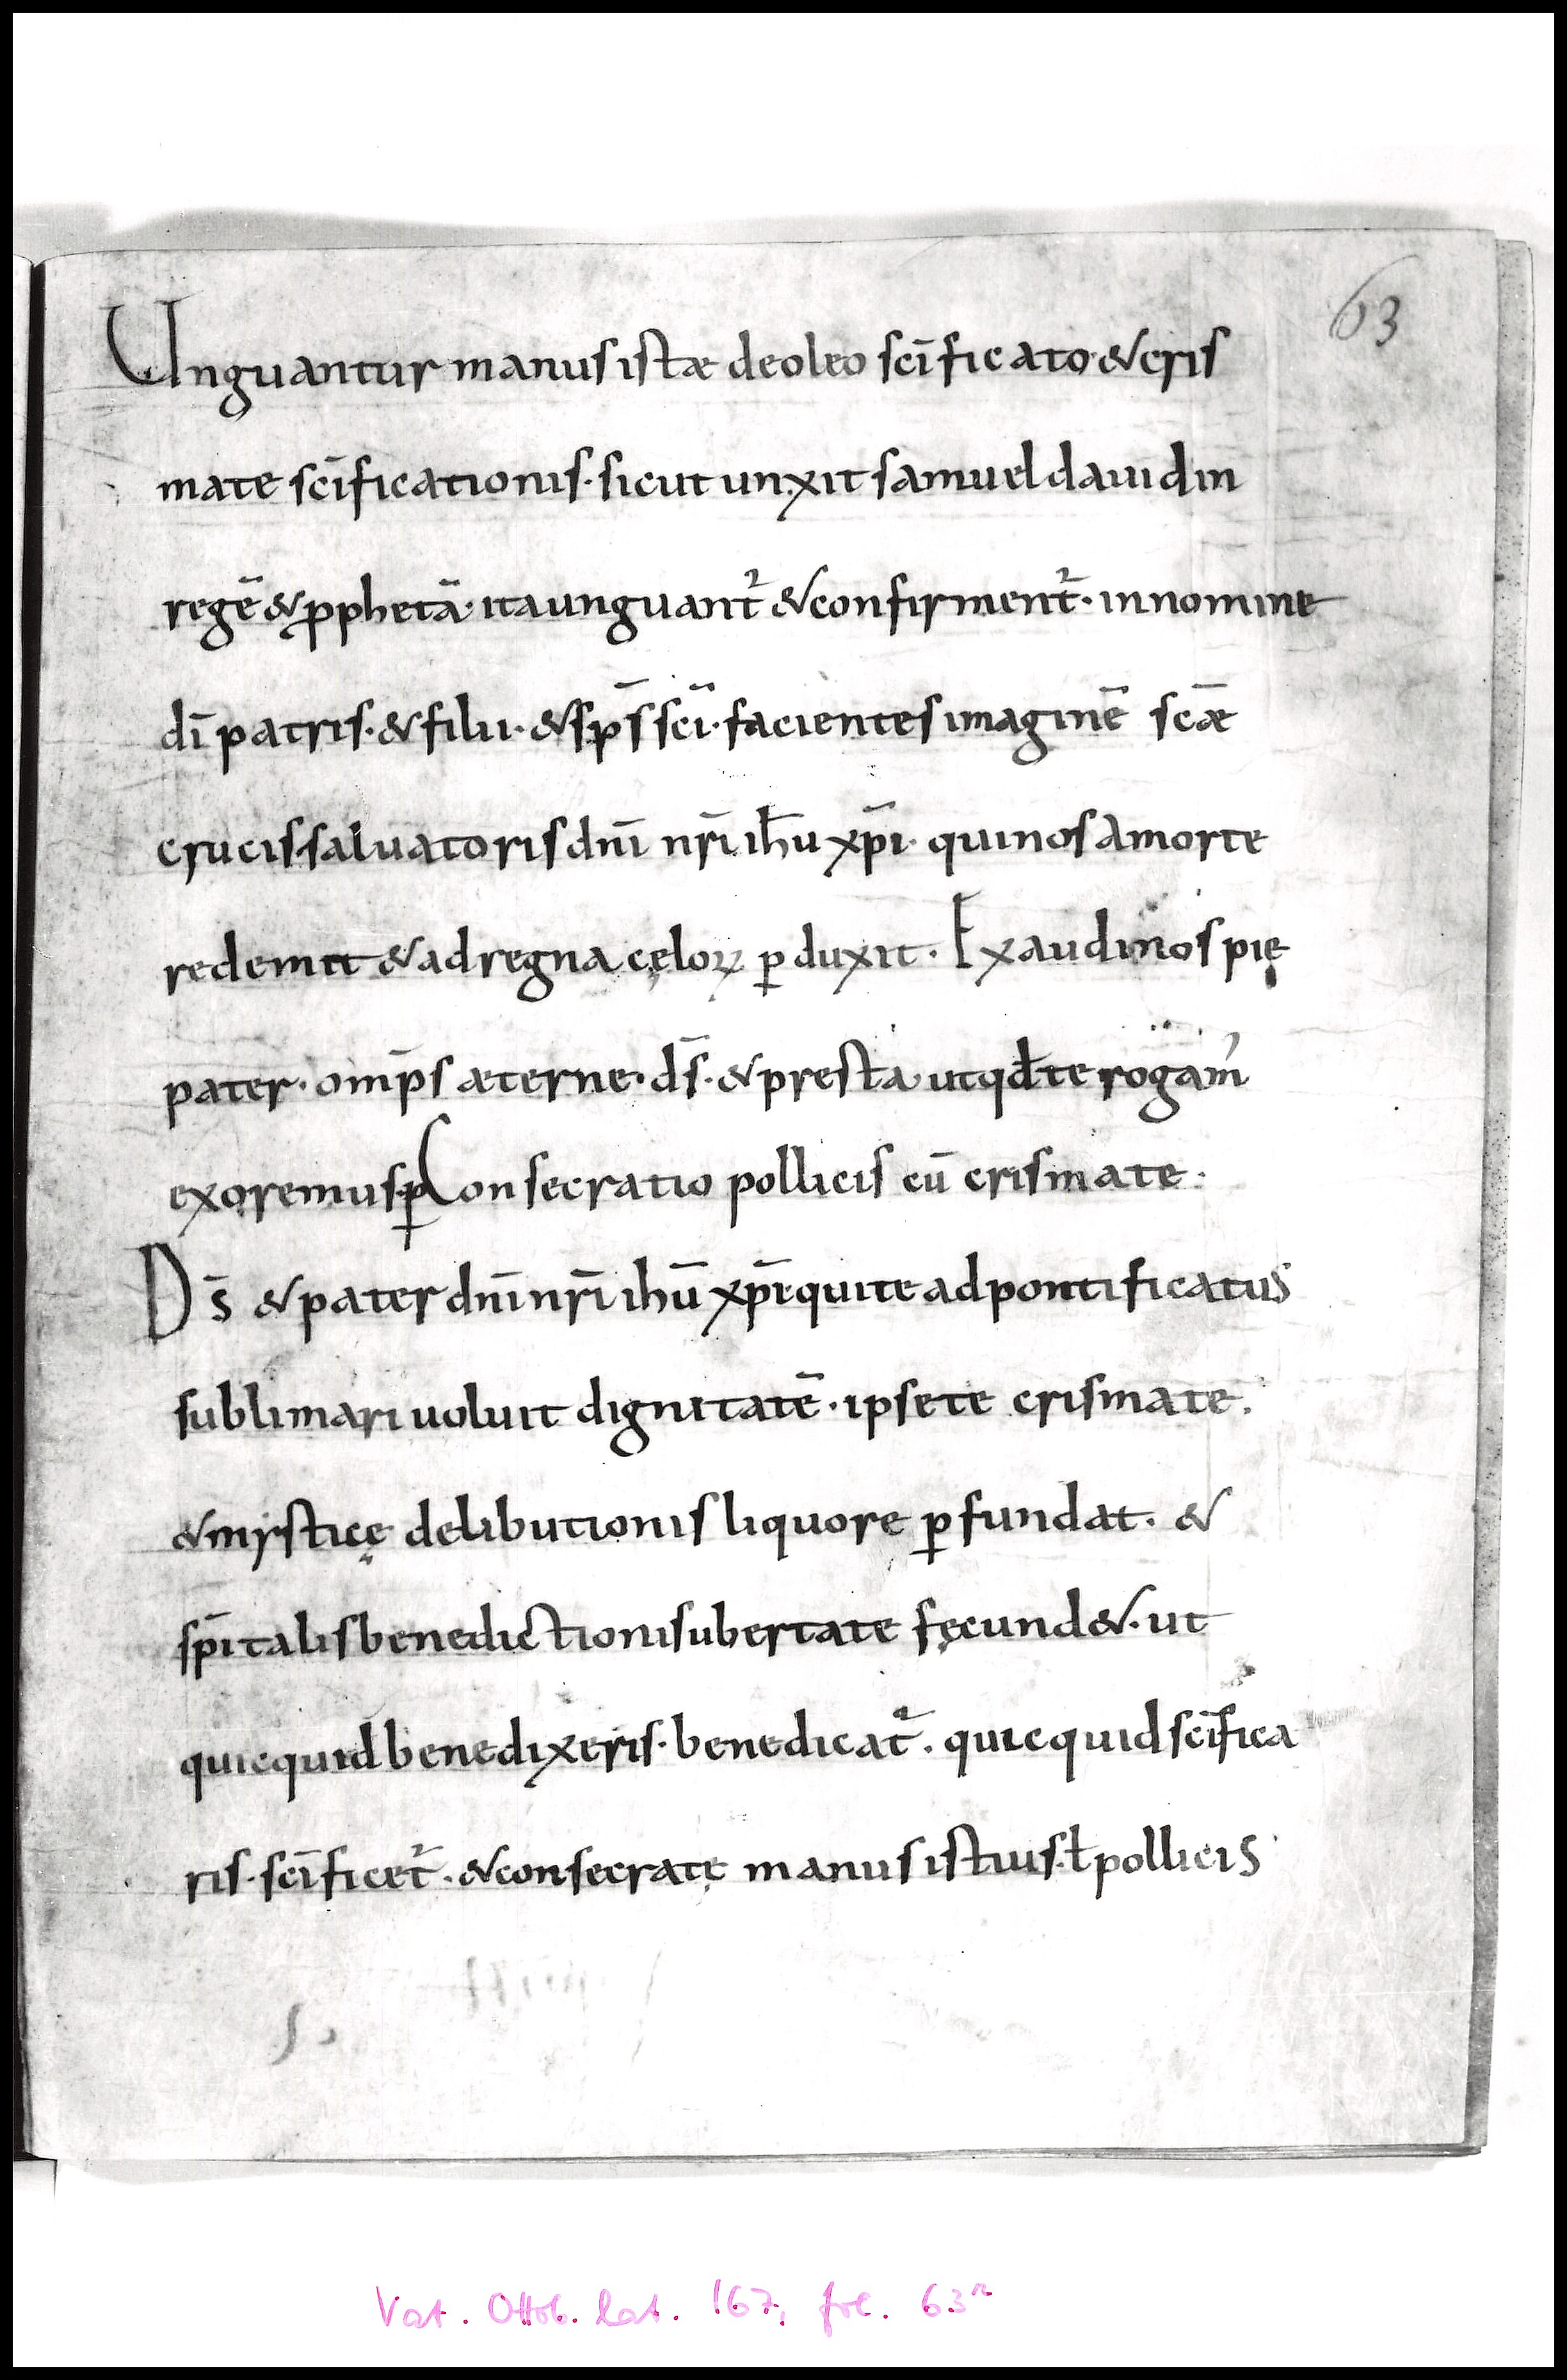 63
Unguantur manus istæ de oleo scīficato & cris
mate scīficationis· sicut unxit samuel dauid in
regē & ꝓphetā· ita unguant᷑ & confirment᷑· in nomine
dī patris· & filii· & sp̄s scī· facientes imaginē scǣ
crucis saluatoris dnī nrī ihū xp̄i· qui nos a morte
redemit & ad regna cęloꝝ ꝑduxit· Exaudi nos pię
pater· omīps æterne· ds̄· & presta ut qđ te rogam᾽
exoremus ꝑ Consecratio pollicis cū crismate·
Ds̄ & pater dnī nrī ihū xp̄i qui te ad pontificatus
sublimari uoluit dignitatē· ipse te crismate·
& mysticę delibutionis liquore ꝑfundat· &
sp̄italis benedictionis ubertate fęcund&· ut
quicquid benedixeris· benedicat᷑· quicquid scīfica
ris· scīficet᷑· & consecratę manus istius· ł pollicis
Vat. Ottob. lat. 167, fol. 63r